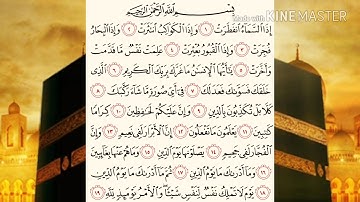 بِسْمِ ٱللَّهِ ٱلرَّحْمَٰنِ ٱلرَّحِيمِ
Made with KINEMASTER
إِذَا ٱلسَّمَآءُ ٱنفَطَرَتْ ١ وَإِذَا ٱلْكَوَاكِبُ ٱنتَثَرَتْ ٢ وَإِذَا ٱلْبِحَارُ
فُجِّرَتْ ٣ وَإِذَا ٱلْقُبُورُ بُعْثِرَتْ ٤ عَلِمَتْ نَفْسٌ مَّا قَدَّمَتْ
وَأَخَّرَتْ ٥ يَٰٓأَيُّهَا ٱلْإِنسَٰنُ مَا غَرَّكَ بِرَبِّكَ ٱلْكَرِيمِ ٦ ٱلَّذِى
خَلَقَكَ فَسَوَّىٰكَ فَعَدَلَكَ ٧ فِىٓ أَىِّ صُورَةٍ مَّا شَآءَ رَكَّبَكَ ٨
كَلَّا بَلْ تُكَذِّبُونَ بِٱلدِّينِ ٩ وَإِنَّ عَلَيْكُمْ لَحَٰفِظِينَ ١٠ كِرَامًا
كَٰتِبِينَ ١١ يَعْلَمُونَ مَا تَفْعَلُونَ ١٢ إِنَّ ٱلْأَبْرَارَ لَفِى نَعِيمٍ ١٣ وَإِنَّ
ٱلْفُجَّارَ لَفِى جَحِيمٍ ١٤ يَصْلَوْنَهَا يَوْمَ ٱلدِّينِ ١٥ وَمَا هُمْ عَنْهَا بِغَآئِبِينَ
١٦ وَمَآ أَدْرَىٰكَ مَا يَوْمُ ٱلدِّينِ ١٧ ثُمَّ مَآ أَدْرَىٰكَ مَا يَوْمُ ٱلدِّينِ
١٨ يَوْمَ لَا تَمْلِكُ نَفْسٌ لِّنَفْسٍ شَيْـًٔا وَٱلْأَمْرُ يَوْمَئِذٍ لِّلَّهِ ١٩